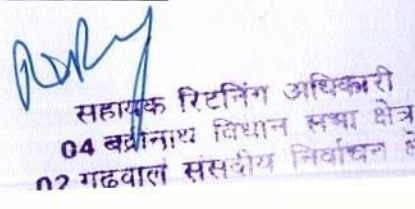 सहायक रिटर्निंग अधिकारी
04 बद्रीनाथ विधान सभा क्षेत्र
02 गढवाल संसदीय निर्वाचन